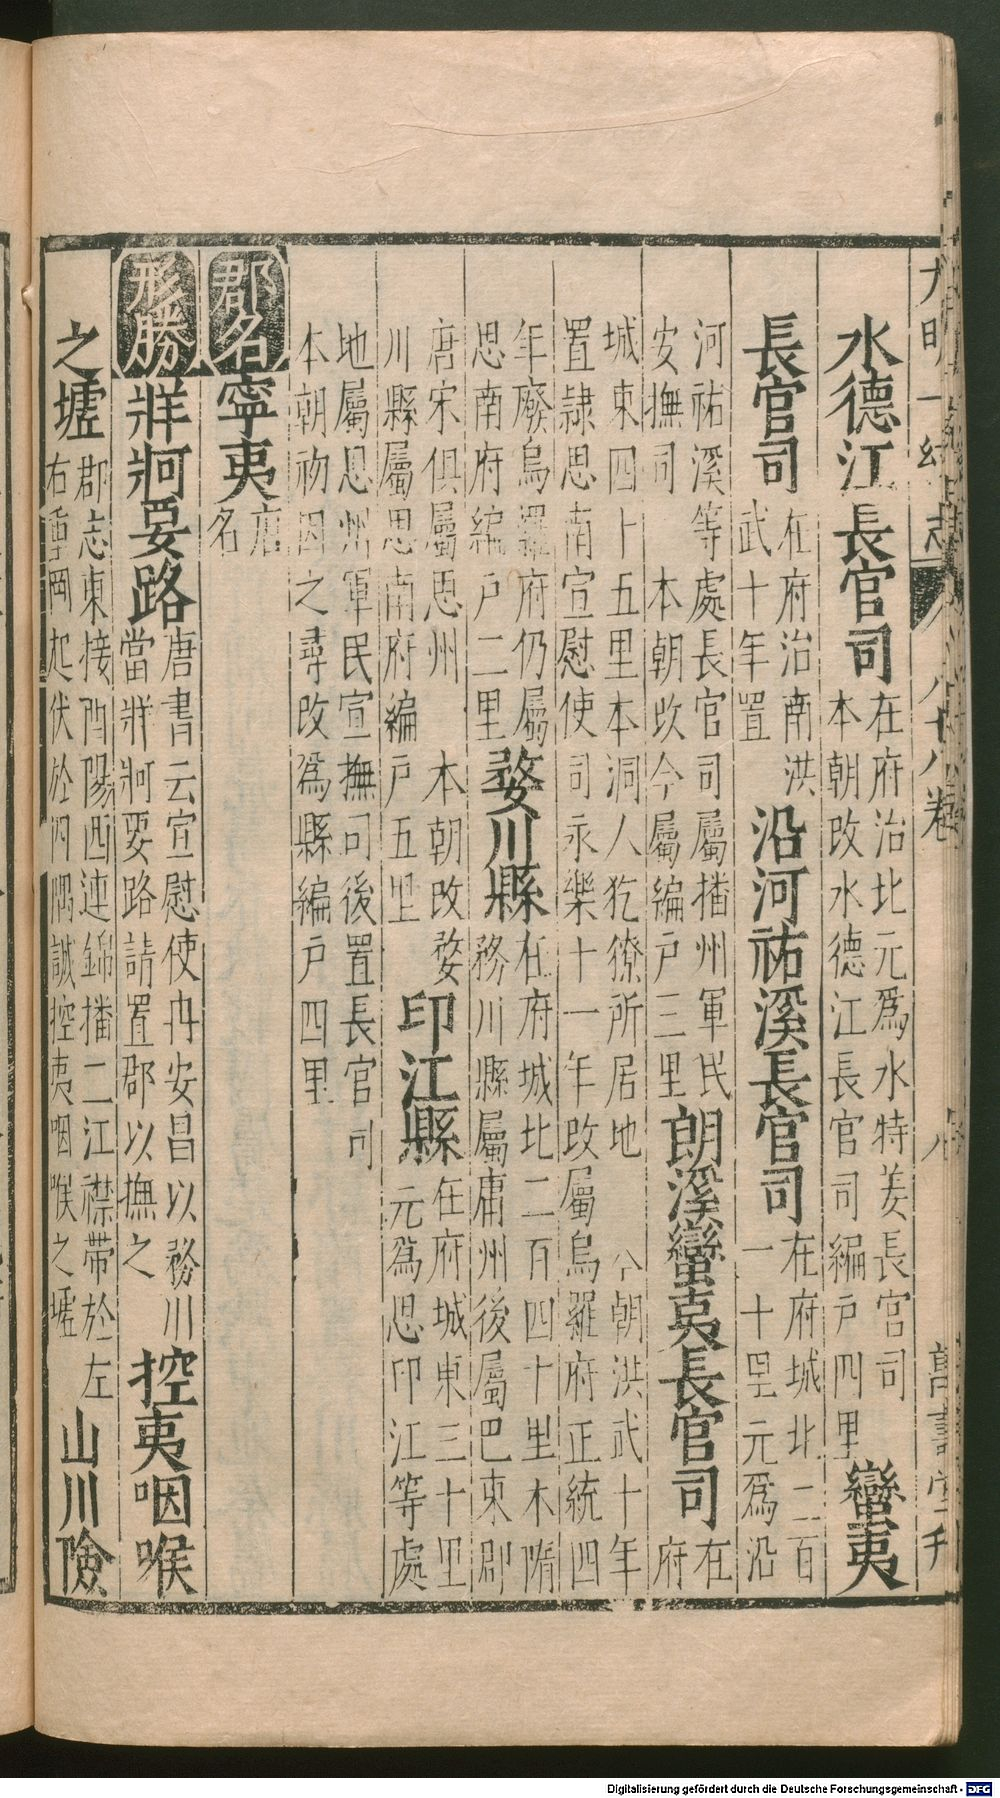 大明一統志 八十八卷 八 萬壽堂刊
水德江長官司 在府治北元爲水特姜長官司
本朝改水德江長官司編戸四里 蠻夷
長官司 在府治南洪
武十年置 沿河祐溪長官司 在府城北二百
一十里元爲沿
河祐溪等處長官司屬播州軍民
安撫司 本朝改今屬編戸三里 朗溪蠻夷長官司 在
府
城東四十五里本洞人犵獠所居地 今朝洪武十年
置隷思南宣慰使司永樂十一年改屬烏羅府正統四
年廢烏羅府仍屬
思南府編戸二里 婺川縣 在府城北二百四十里本隋
務川縣屬庸州後屬巴東郡
唐宋俱屬思州 本朝改婺
川縣屬思南府編戸五里 印江縣 在府城東三十里
元爲思印江等處
地屬思州軍民宣撫司後置長官司
本朝初因之尋改爲縣編戸四里
郡名 寧夷 唐
名
形勝 牂牁要路 唐書云宣慰使冉安昌以務川
當牂牁要路請置郡以撫之 控夷咽喉
之墟 郡志東接酉陽西連錦播二江襟帶於左
右重岡起伏於四隅誠控夷咽喉之墟 山川險
Digitalisierung gefördert durch die Deutsche Forschungsgemeinschaft - DFG